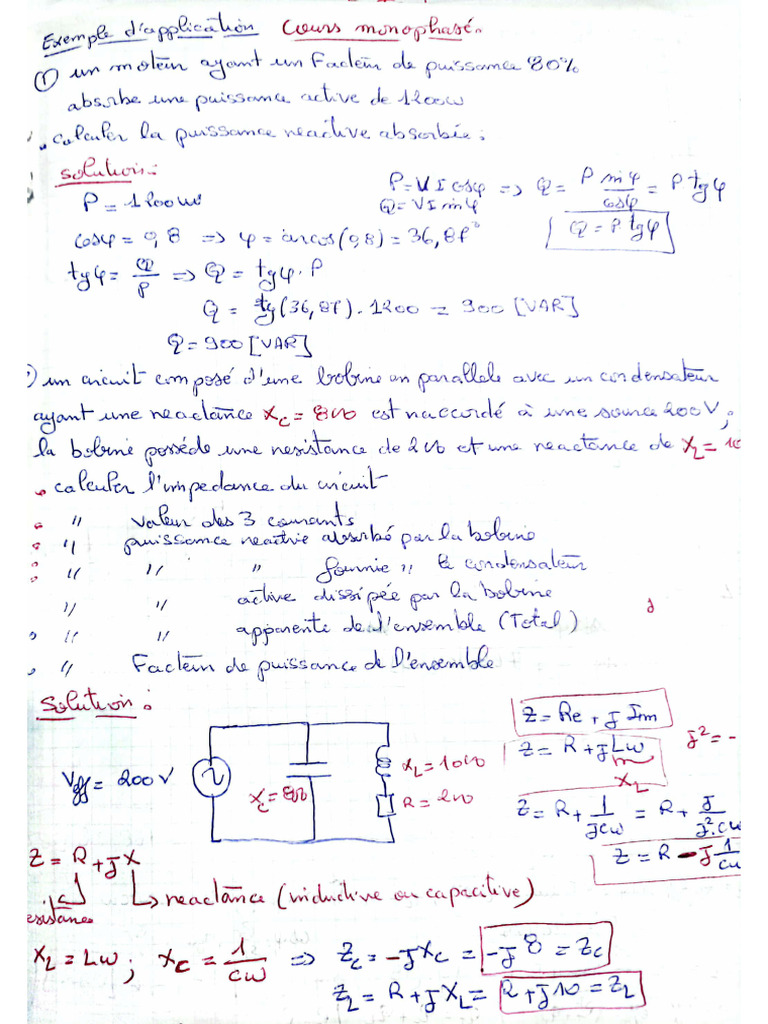 Exemple d'application Cours monophasé.
① un moteur ayant un Facteur de puissance 80%
absorbe une puissance active de 1200W
. calculer la puissance reactive absorbée :
Solution :
P = 1200W
P = V I cosφ => Q = P sinφ / cosφ = P tgφ
Q = V I sinφ
Q = P tgφ
cosφ = 0,8 => φ = arcos(0,8) = 36,87°
tgφ = Q/P => Q = tgφ . P
Q = tg(36,87) . 1200 = 900 [VAR]
Q = 900 [VAR]
) un circuit composé d'une bobine en parallele avec un condensateur
ayant une reactance Xc = 8Ω est raccordé à une source 200V ;
la bobine posséde une resistance de 2Ω et une reactance de XL = 10
. calculer l'impedance du circuit
. " valeur des 3 courants
. " puissance reactive absorbé par la bobine
. " " " fournie " le condensateur
" " active dissipée par la bobine
. " " apparente de l'ensemble (Total)
. " Facteur de puissance de l'ensemble
Solution :
Z = Re + j Im
Z = R + j Lω
XL
j² = -
Veff = 200V
Xc = 8Ω
XL = 10Ω
R = 2Ω
Z = R + 1/jcω = R + j/j².cω
Z = R - j 1/cω
Z = R + j X
resistance
reactance (inductive ou capacitive)
XL = Lω ; Xc = 1/cω => Zc = -jXc = -j8 = Zc
ZL = R + jXL = R + j10 = ZL